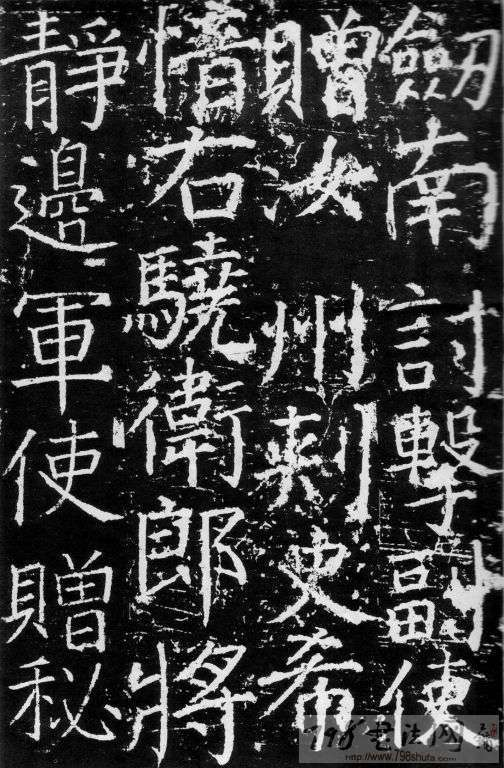 劒南討擊副使
贈汝州刺史希
愔右驍衛郎將
靜邊軍使贈秘
798書法网
http://www.798shufa.com